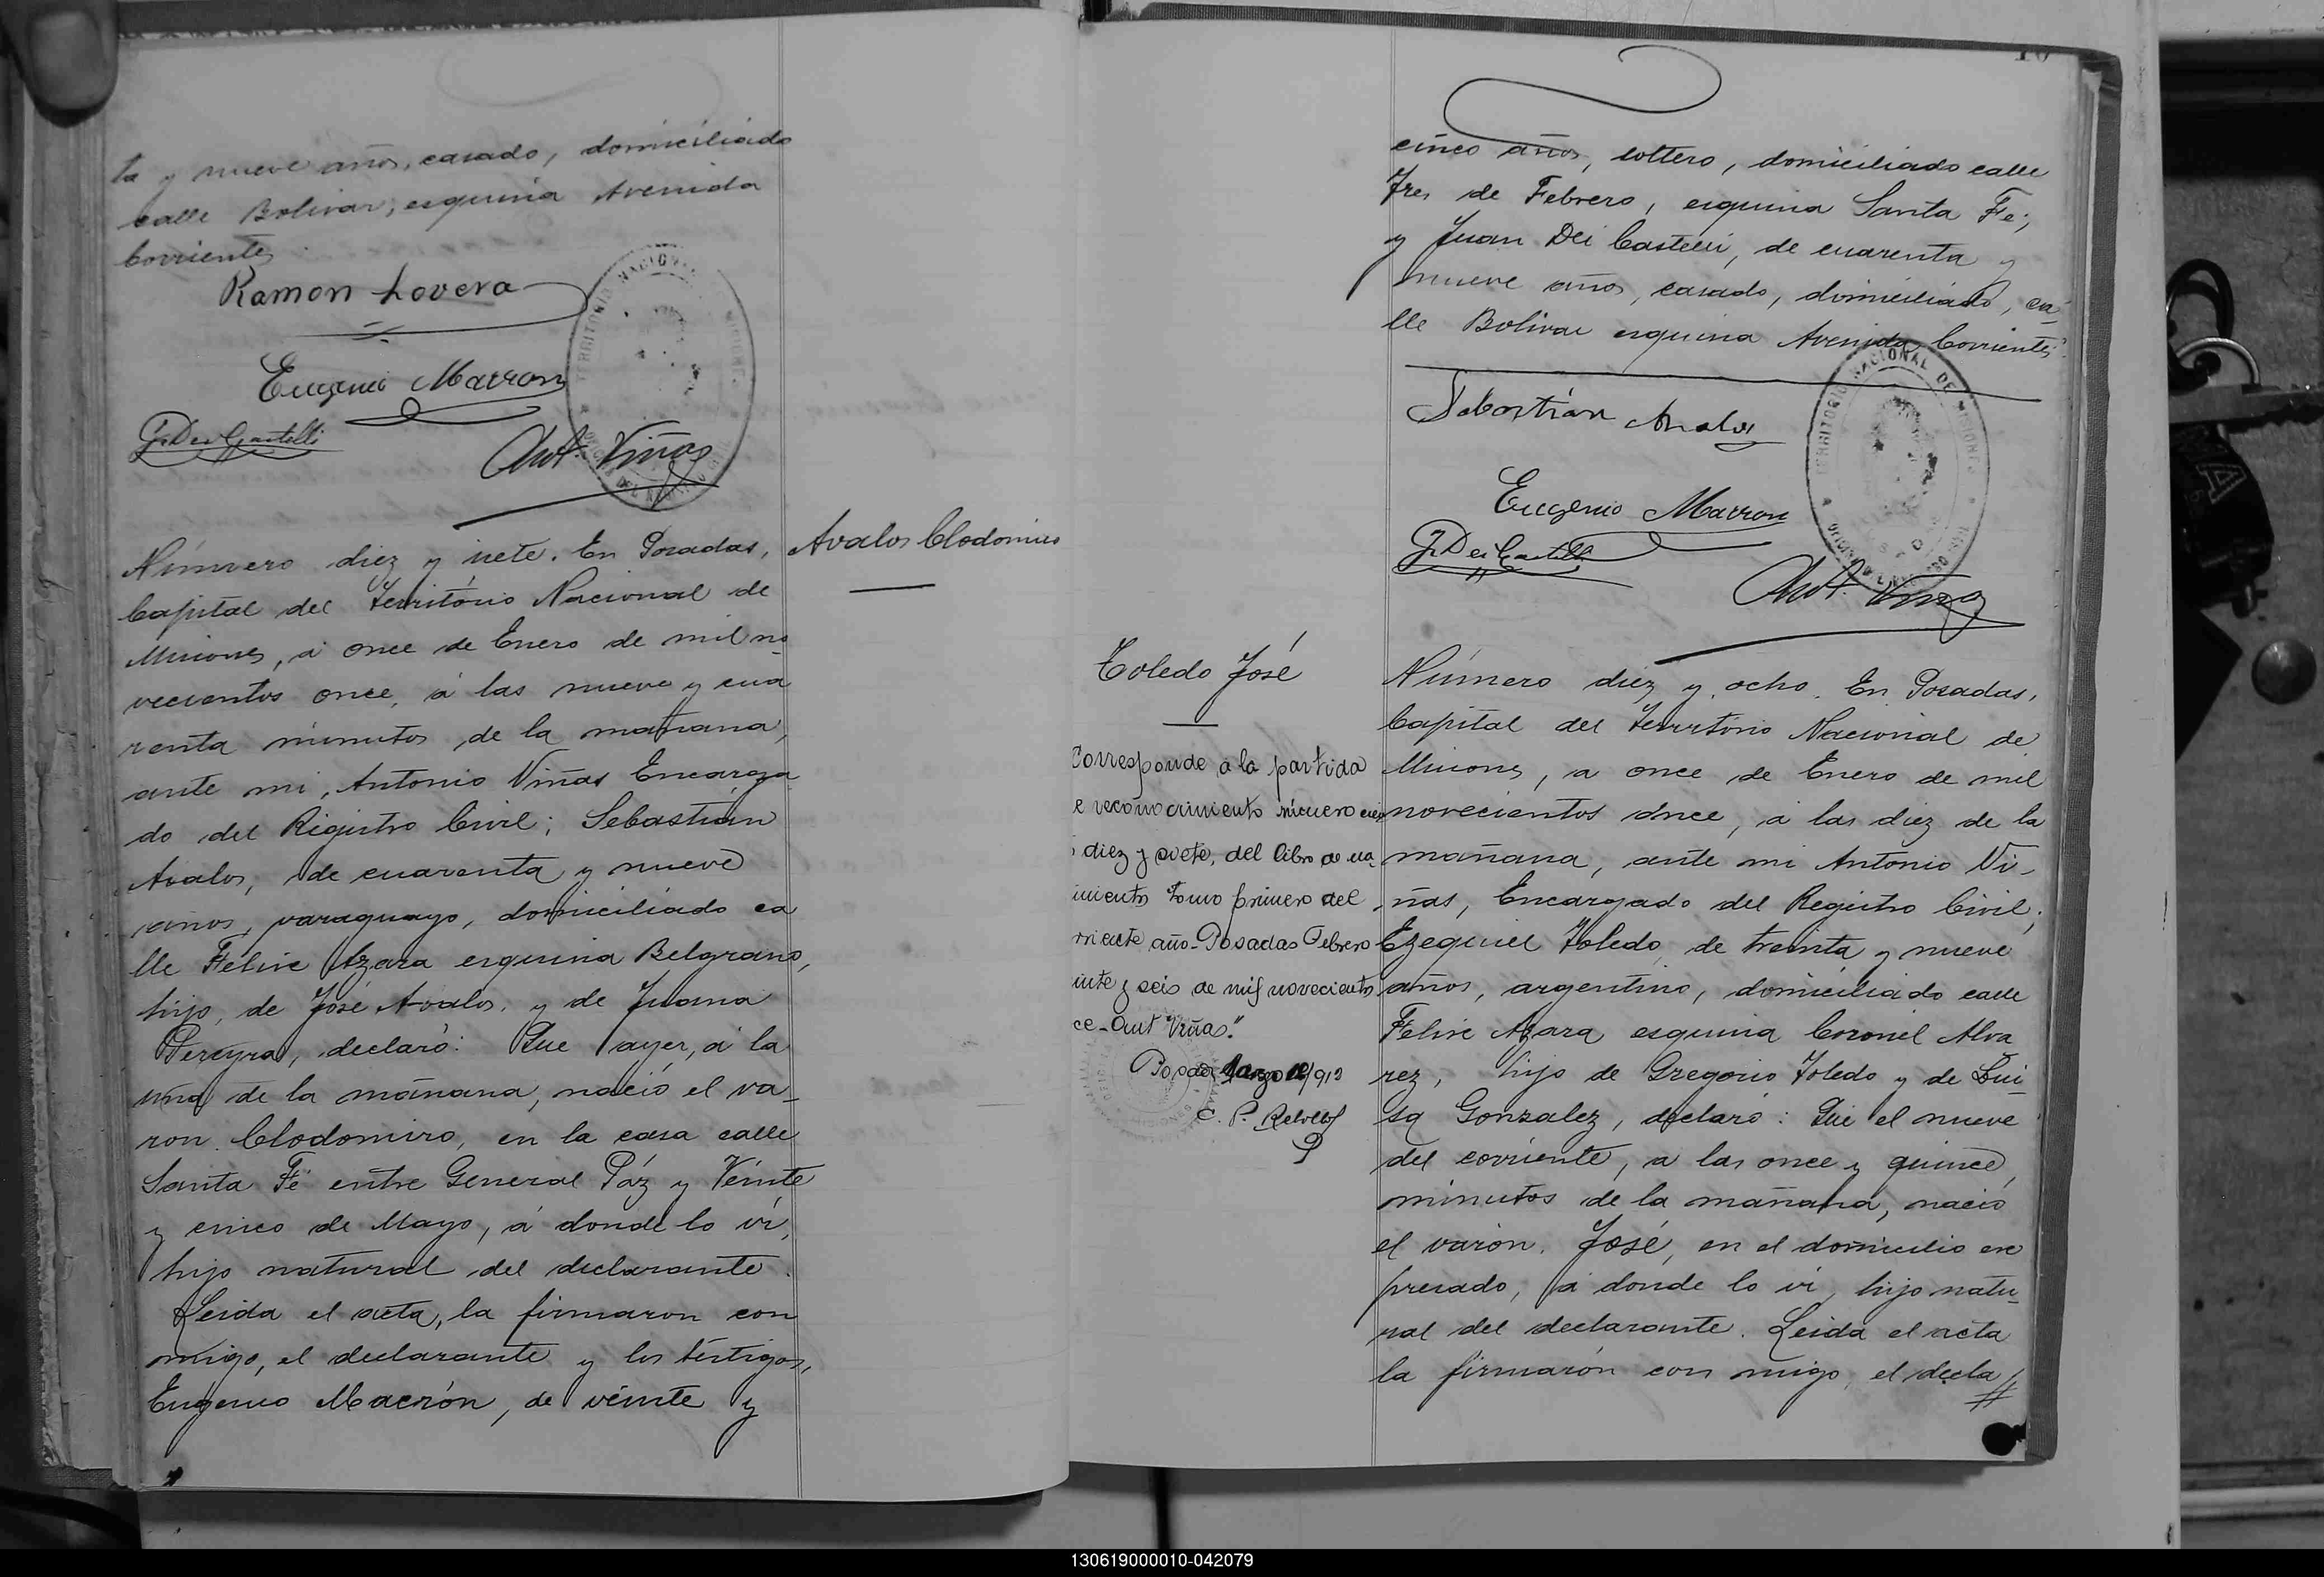 ta y nueve años, casado, domiciliado
calle Bolivar, esquina Avenida
Corrientes
Ramon Lovera
Eugenio Marron
J. Dei Castelli
Ant. Viñas
Avalos Clodomiro
Número diez y siete. En Posadas,
Capital del Territorio Nacional de
Misiones, á once de Enero de mil no
vecientos once, á las nueve y cua
renta minutos de la mañana,
ante mi, Antonio Viñas Encarga
do del Registro Civil; Sebastián
Avalos, de cuarenta y nueve
años, paraguayo, domiciliado ca
lle Felix Azara esquina Belgrano,
hijo, de José Avalos, y de Juana
Pereyra, declaró: Que ayer, á la
una de la mañana, nació el va-
ron Clodomiro, en la casa calle
Santa Fé entre General Páz y Veinte
y cinco de Mayo, á donde lo ví,
hijo natural del declarante.
Leida el acta, la firmaron con
migo, el declarante y los testigos,
Eugenio Macrón, de veinte y
cinco años, soltero, domiciliado calle
Tres de Febrero, esquina Santa Fe;
y Juan Dei Castelli, de cuarenta y
nueve años, casado, domiciliado, ca-
lle Bolivar esquina Avenida Corrientes.
TERRITORIO NACIONAL DE MISIONES
Sebastián Avalos
Eugenio Marron
J. Dei Castelli
Ant. Viñas
Toledo José
Corresponde á la partida
e reconocimiento número cien
diez y siete, del libro de na-
imientos tomo primero del
rriente año-Posadas Febrero
inte y seis de mil novecientos
ce-Ant Viñas."
Posadas Marzo 12/912
Número diez y ocho. En Posadas,
Capital del Territorio Nacional de
Misiones, a once de Enero de mil
novecientos once, á las diez de la
mañana, ante mi Antonio Vi-
ñas, Encargado del Registro Civil;
Ezequiel Toledo, de treinta y nueve
años, argentino, domiciliado calle
Felix Azara esquina Coronel Alva
rez, hijo de Gregorio Toledo y de Lui-
sa Gonzalez, declaró: Que el nueve
del corriente, a las once y quince
minutos de la mañana, nació
el varón, José, en el domicilio ex
presado, á donde lo ví, hijo natu-
ral del declarante. Leida el acta
la firmarón con migo, el decla//
130619000010-042079